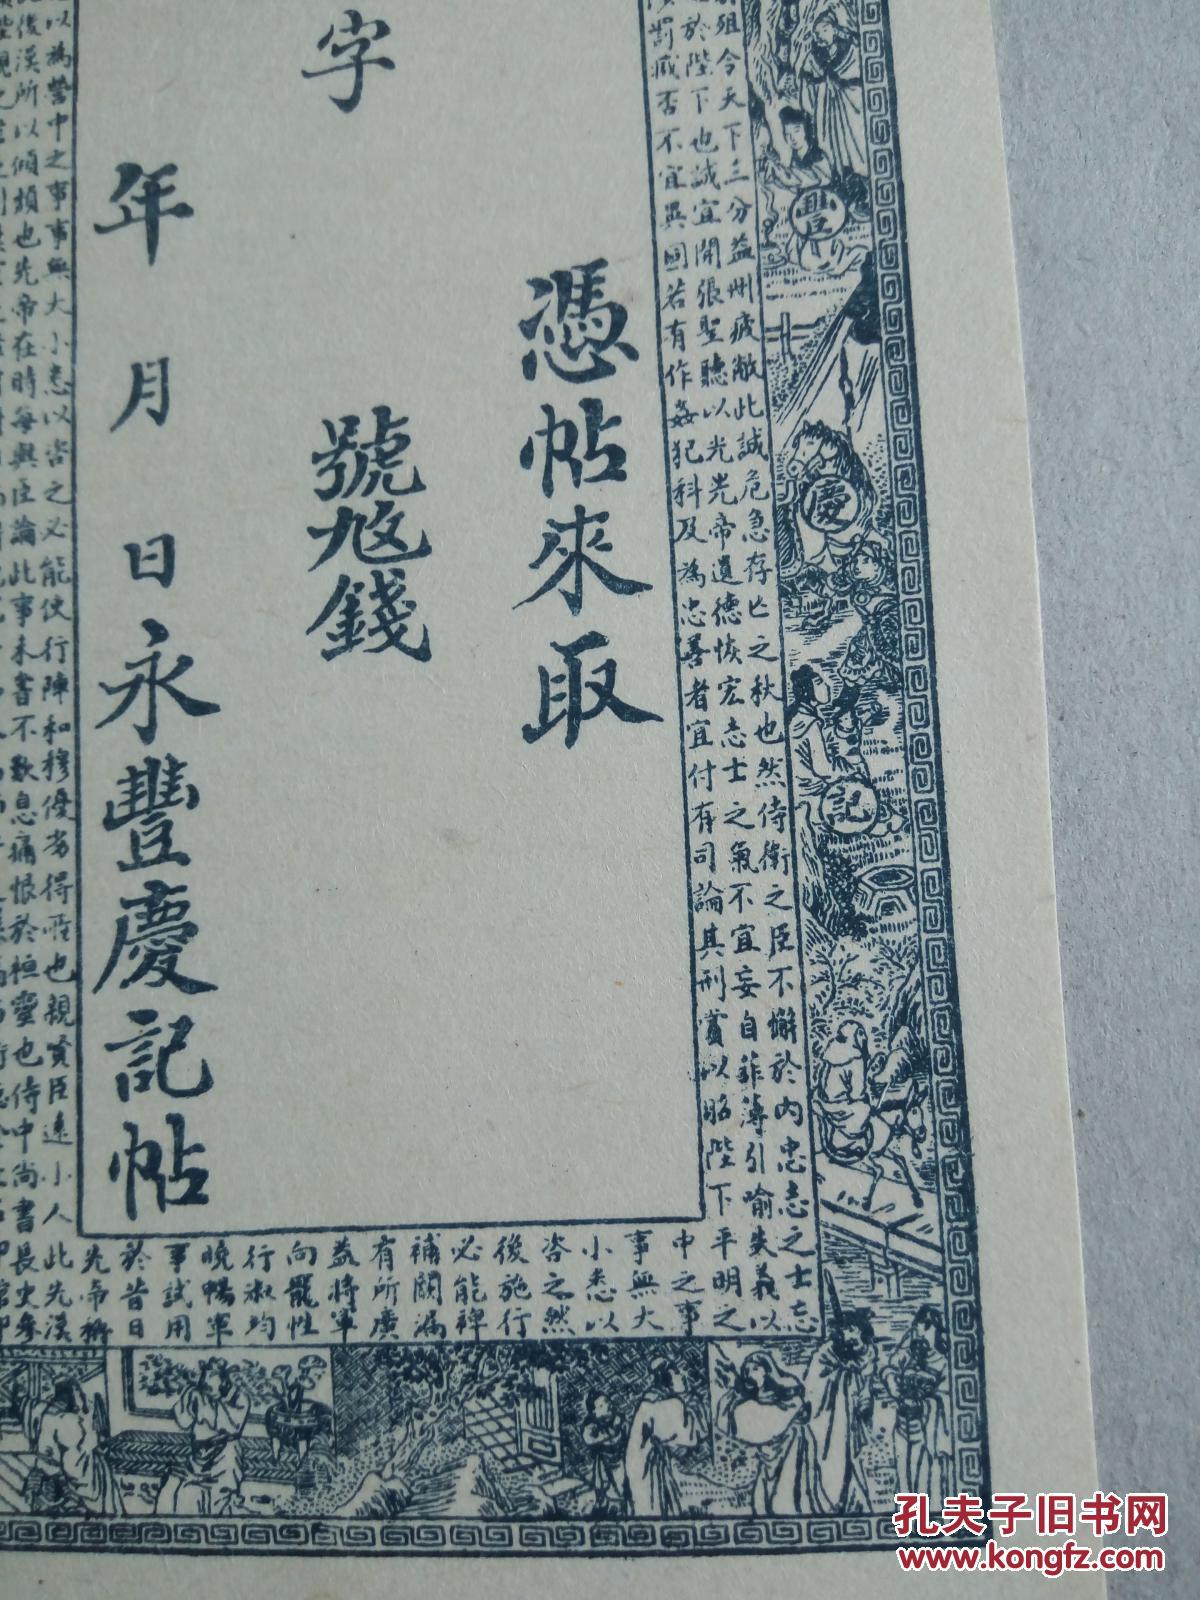 憑帖來取
字
號
錢
年 月 日永豐慶記帖
豐
慶
記
殂今天下三分益州疲敝此誠危急存亡之秋也然侍衛之臣不懈於內忠志之士忘
於陛下也誠宜開張聖聽以光光帝遺德恢宏志士之氣不宜妄自菲薄引喻失義以
罰臧否不宜異同若有作姦犯科及為忠善者宜付有司論其刑賞以昭陛下平明之
中之事
事無大
小悉以
咨之然
後施行
必能裨
補闕漏
有所廣
益將軍
向寵性
行淑均
曉暢軍
事試用
於昔日
先帝稱
以為營中之事事無大小悉以咨之必能使行陣和穆優劣得所也親賢臣遠小人此先漢
後漢所以傾頹也先帝在時每與臣論此事未嘗不歎息痛恨於桓靈也侍中尚書長史參
孔夫子旧书网
www.kongfz.com